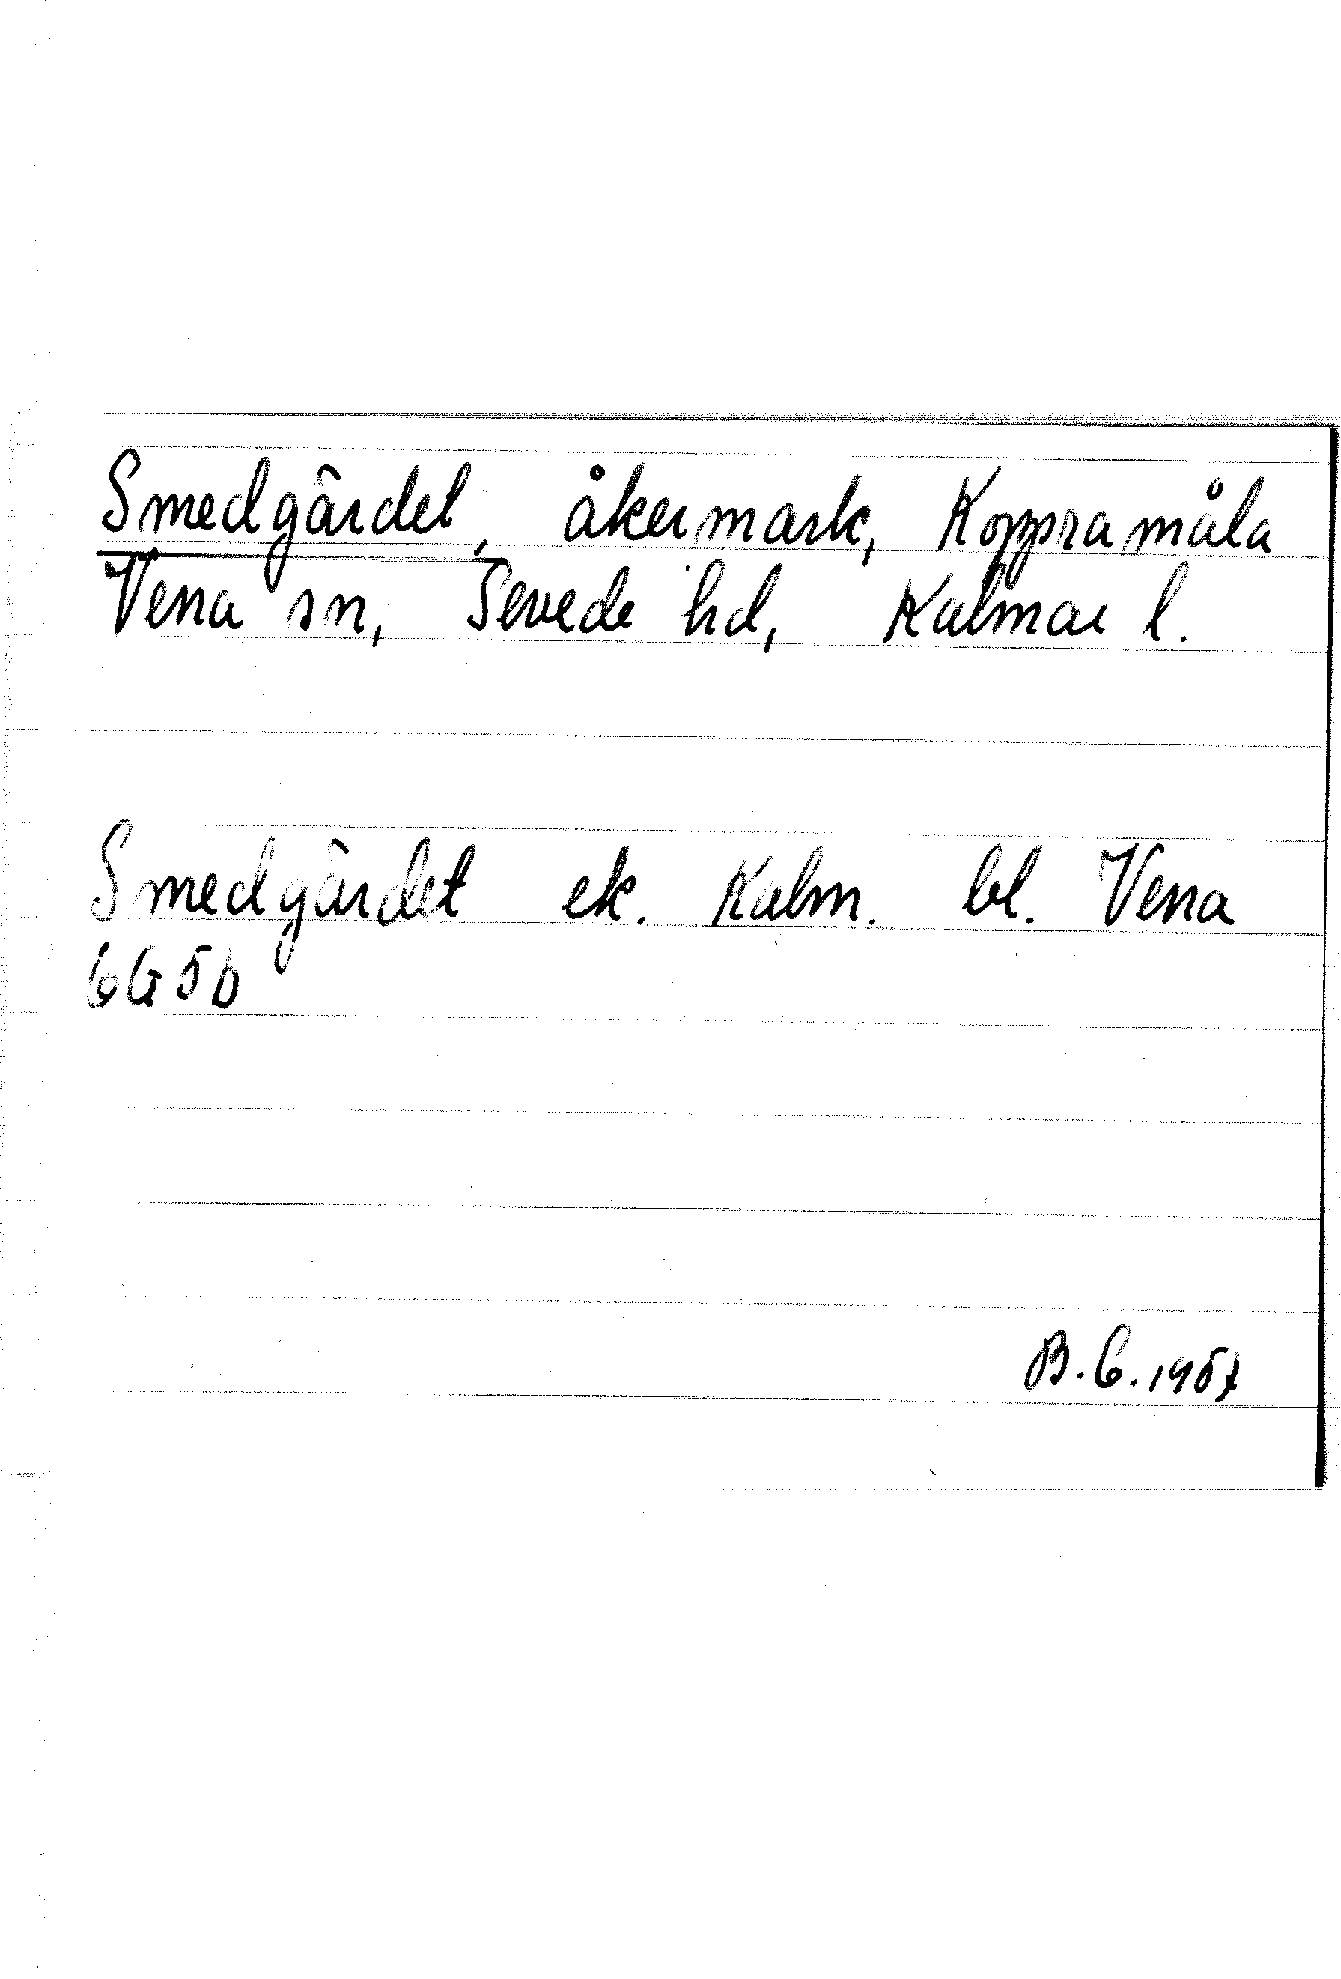 Smedgärdet, åkermark, Koppramåla
Vena sn, Sevede hd, Kalmar l.
Smedgärdet ek. Kalm. bl. Vena
6G5b
B.G.1957